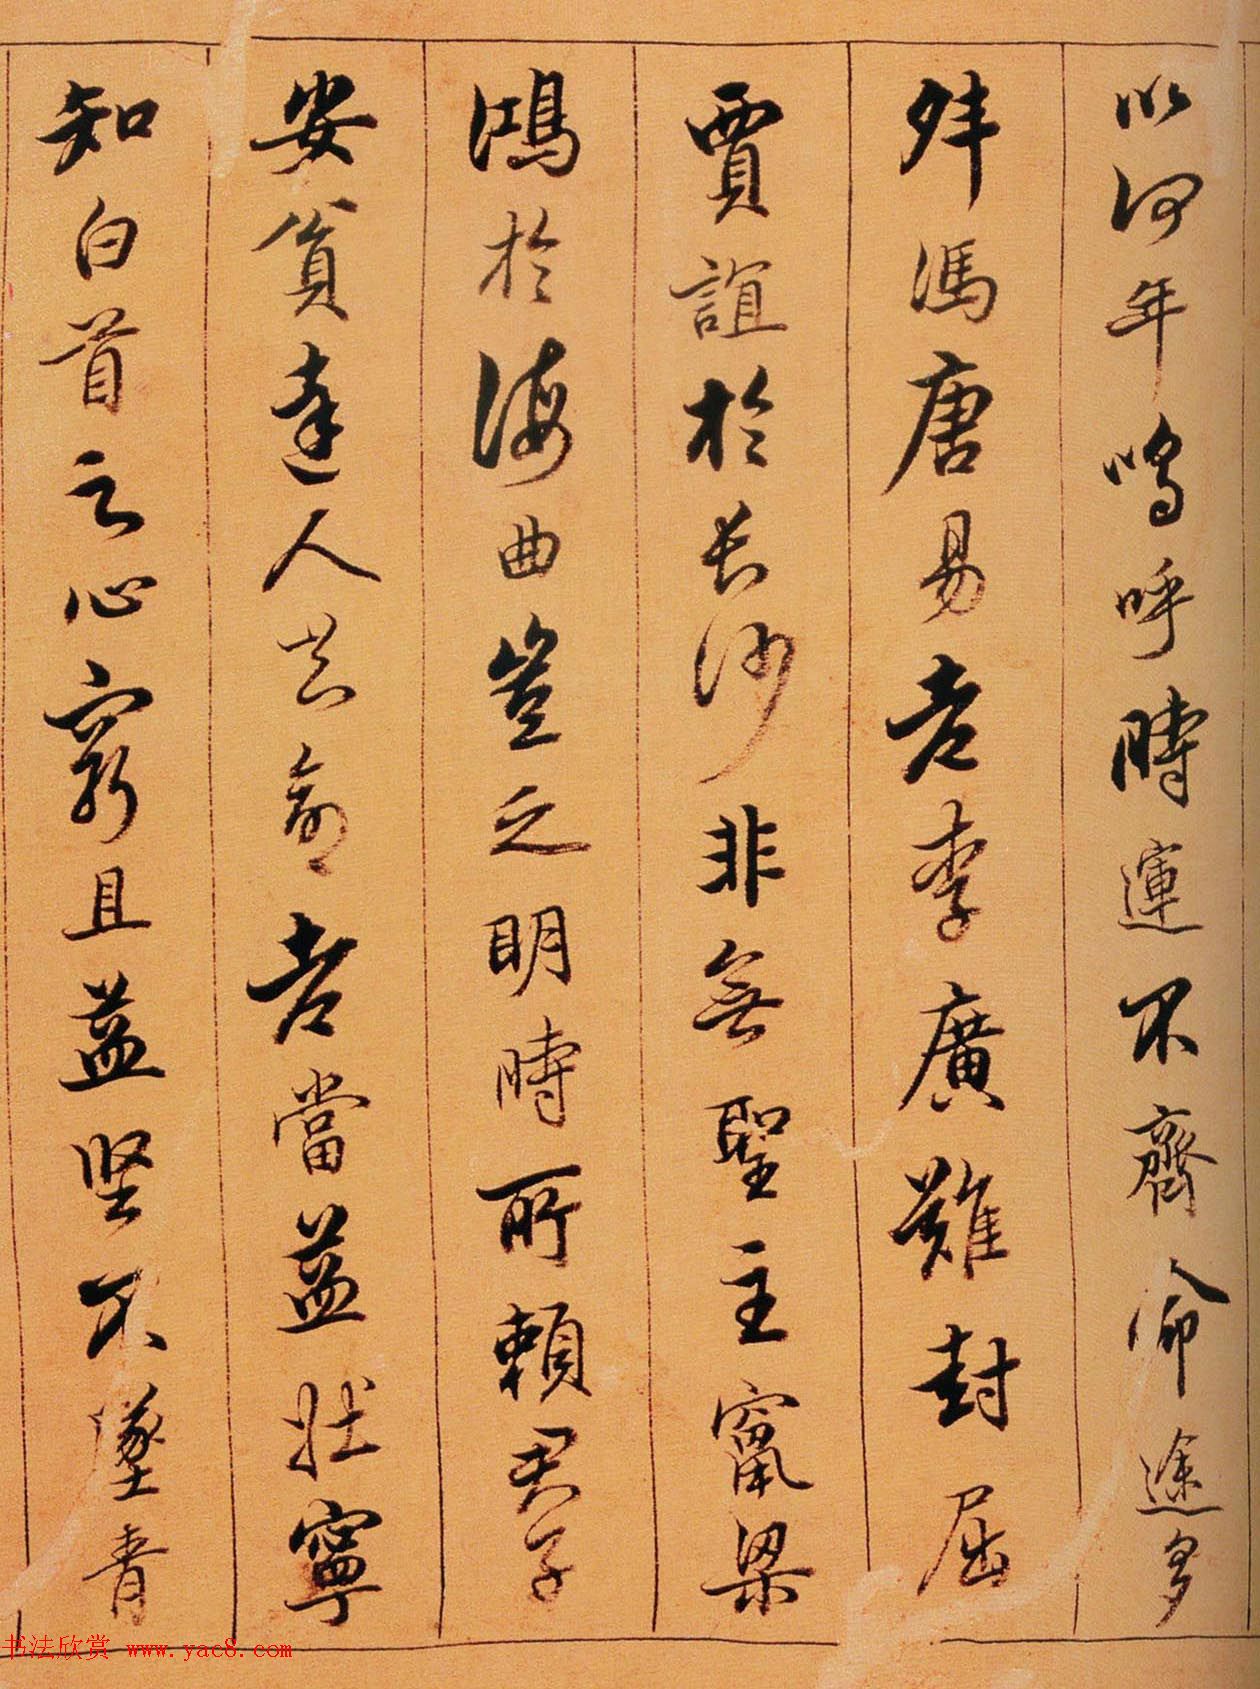 以何年嗚呼時運不齊命途多
舛馮唐易老李廣難封屈
賈誼於長沙非無聖主竄梁
鴻於海曲豈乏明時所賴君子
安貧達人知命老當益壯寧
知白首之心窮且益坚不墜青
书法欣赏 www.yac8.com